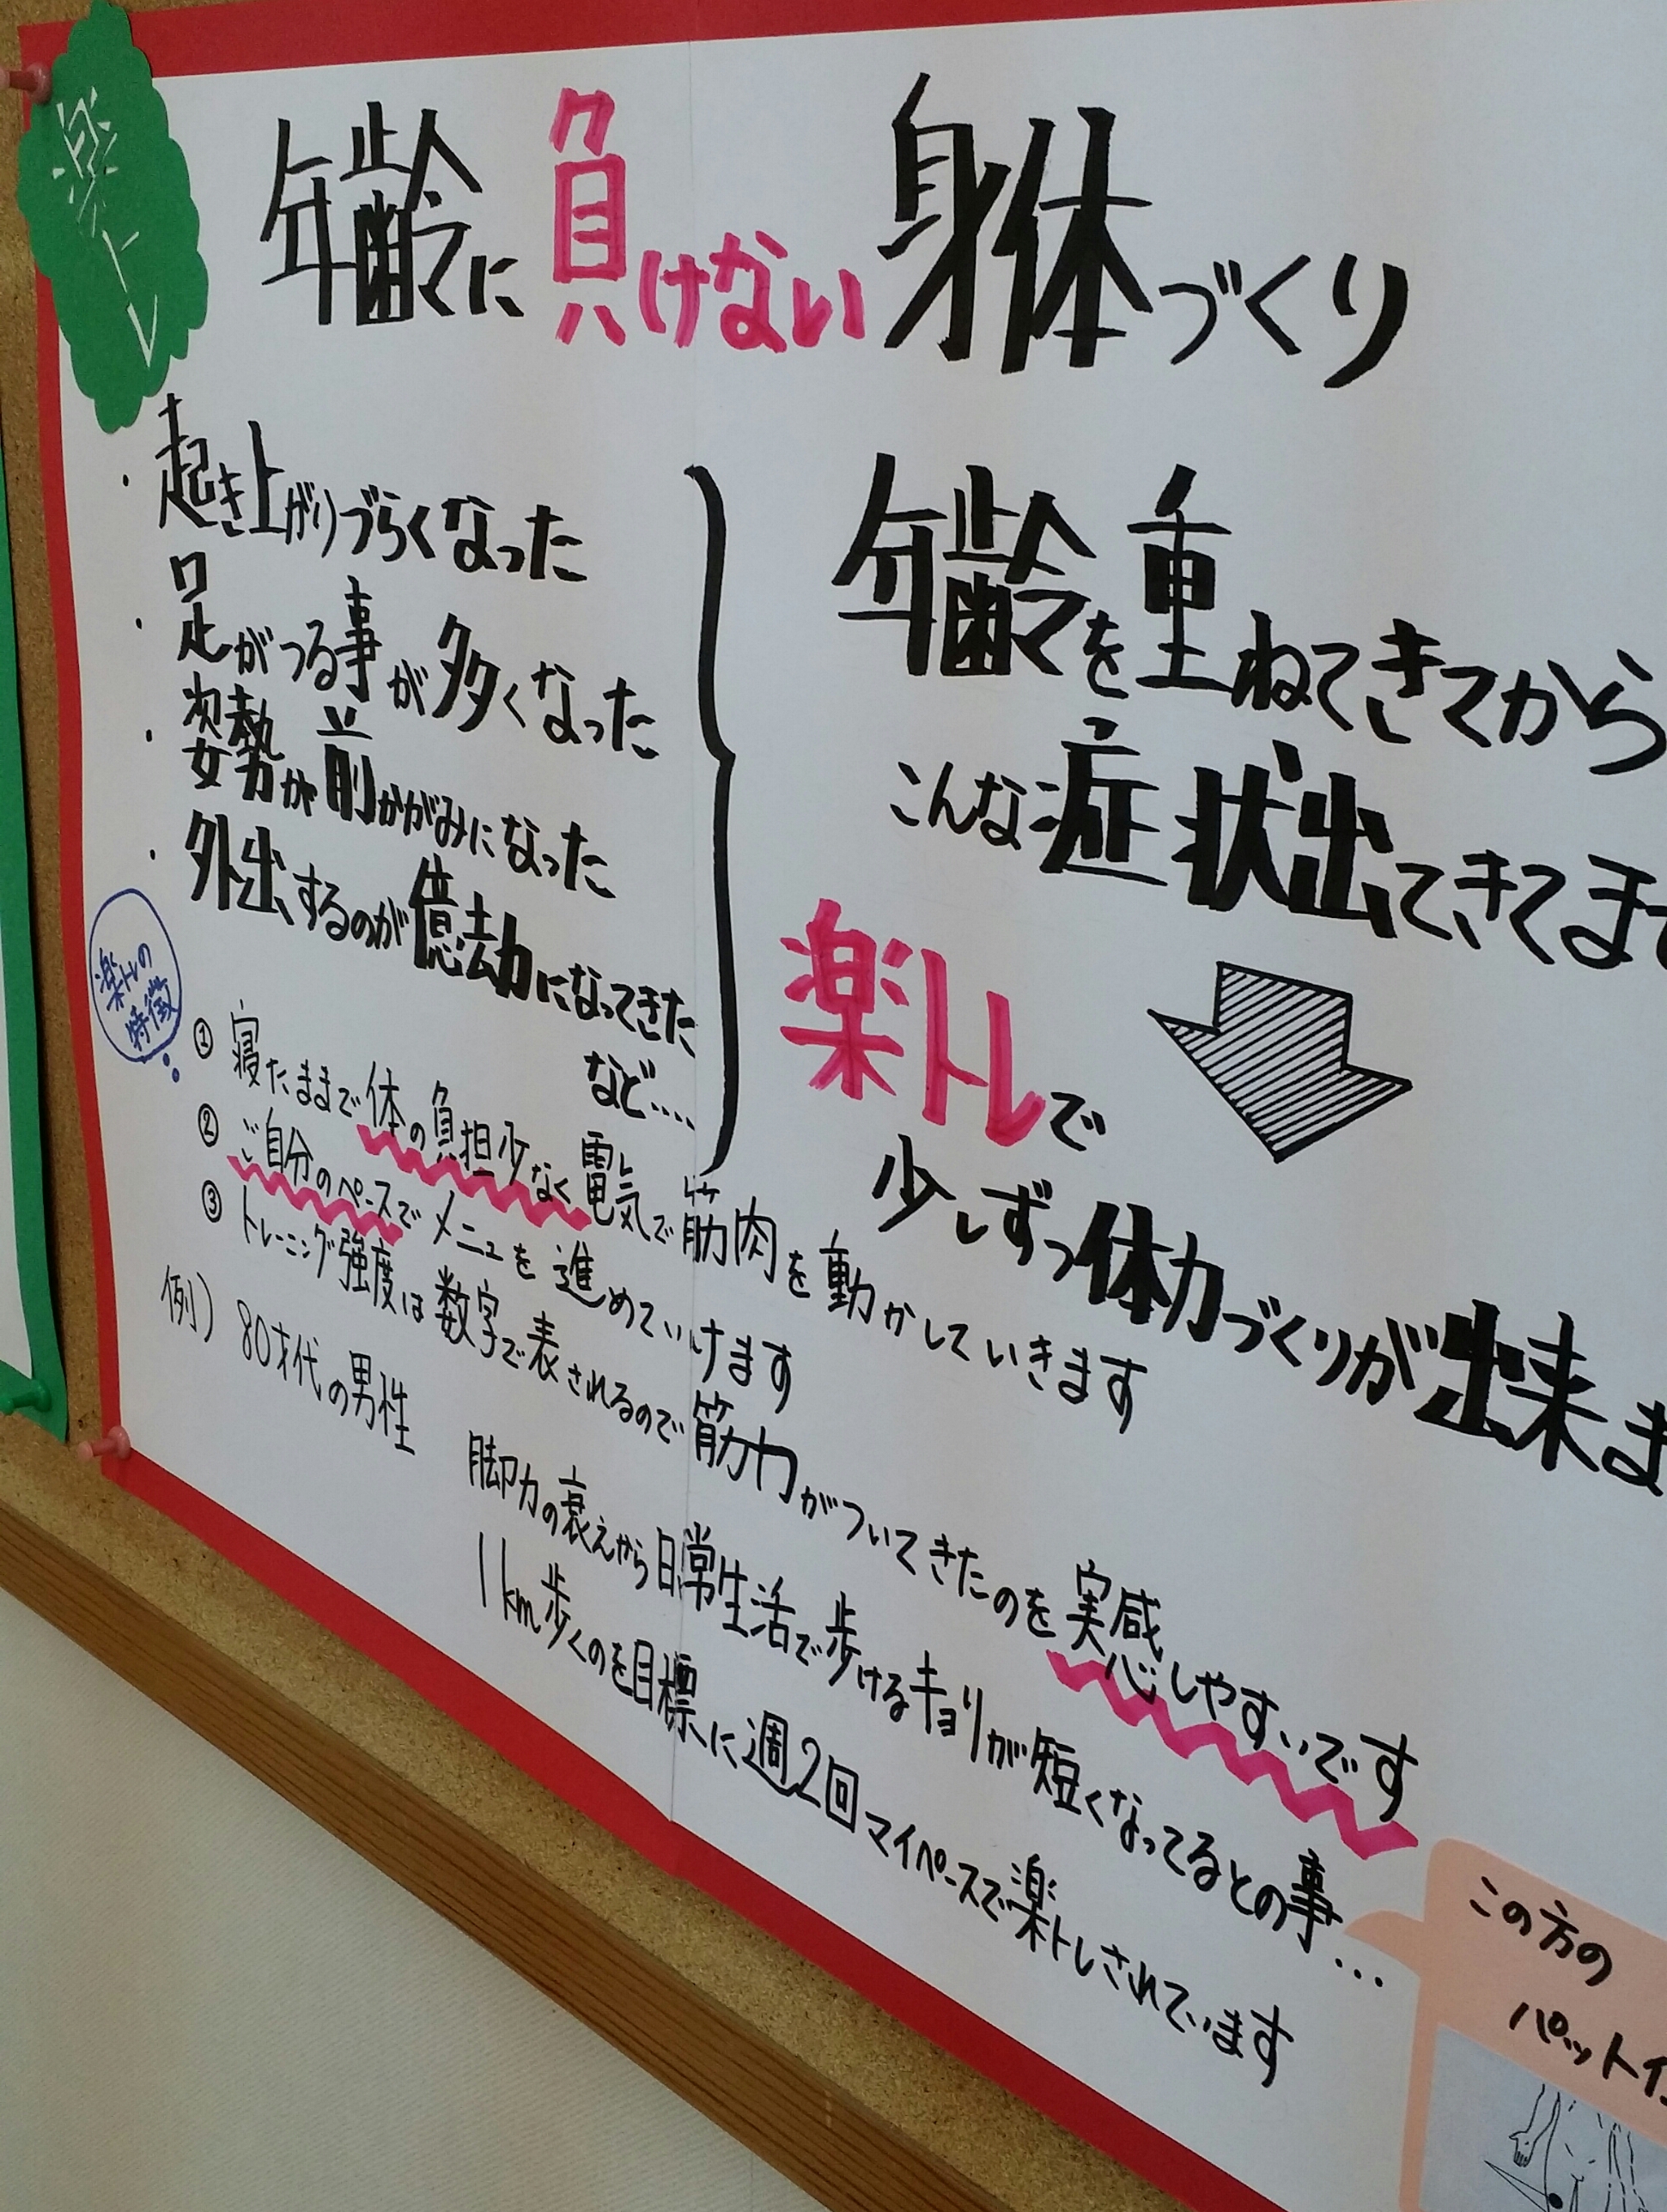 楽トレ
年齢に負けない身体づくり
・起き上がりづらくなった
・足がつる事が多くなった
・姿勢が前かがみになった
・外出するのが億劫になってきた
など....
年齢を重ねてきてから
こんな症状出てきてませ
楽トレで
少しずつ体力づくりが出来ま
楽トレの
特徴
① 寝たままで体の負担少なく電気で筋肉を動かしていきます
② ご自分のペースでメニュを進めていけます
③ トレーニング強度は数字で表されるので筋力がついてきたのを実感しやすいです
例) 80才代の男性
脚力の衰えから日常生活で歩けるキョリが短くなってるとの事...
1km歩くのを目標に週2回マイペースで楽トレされています
この方の
パット